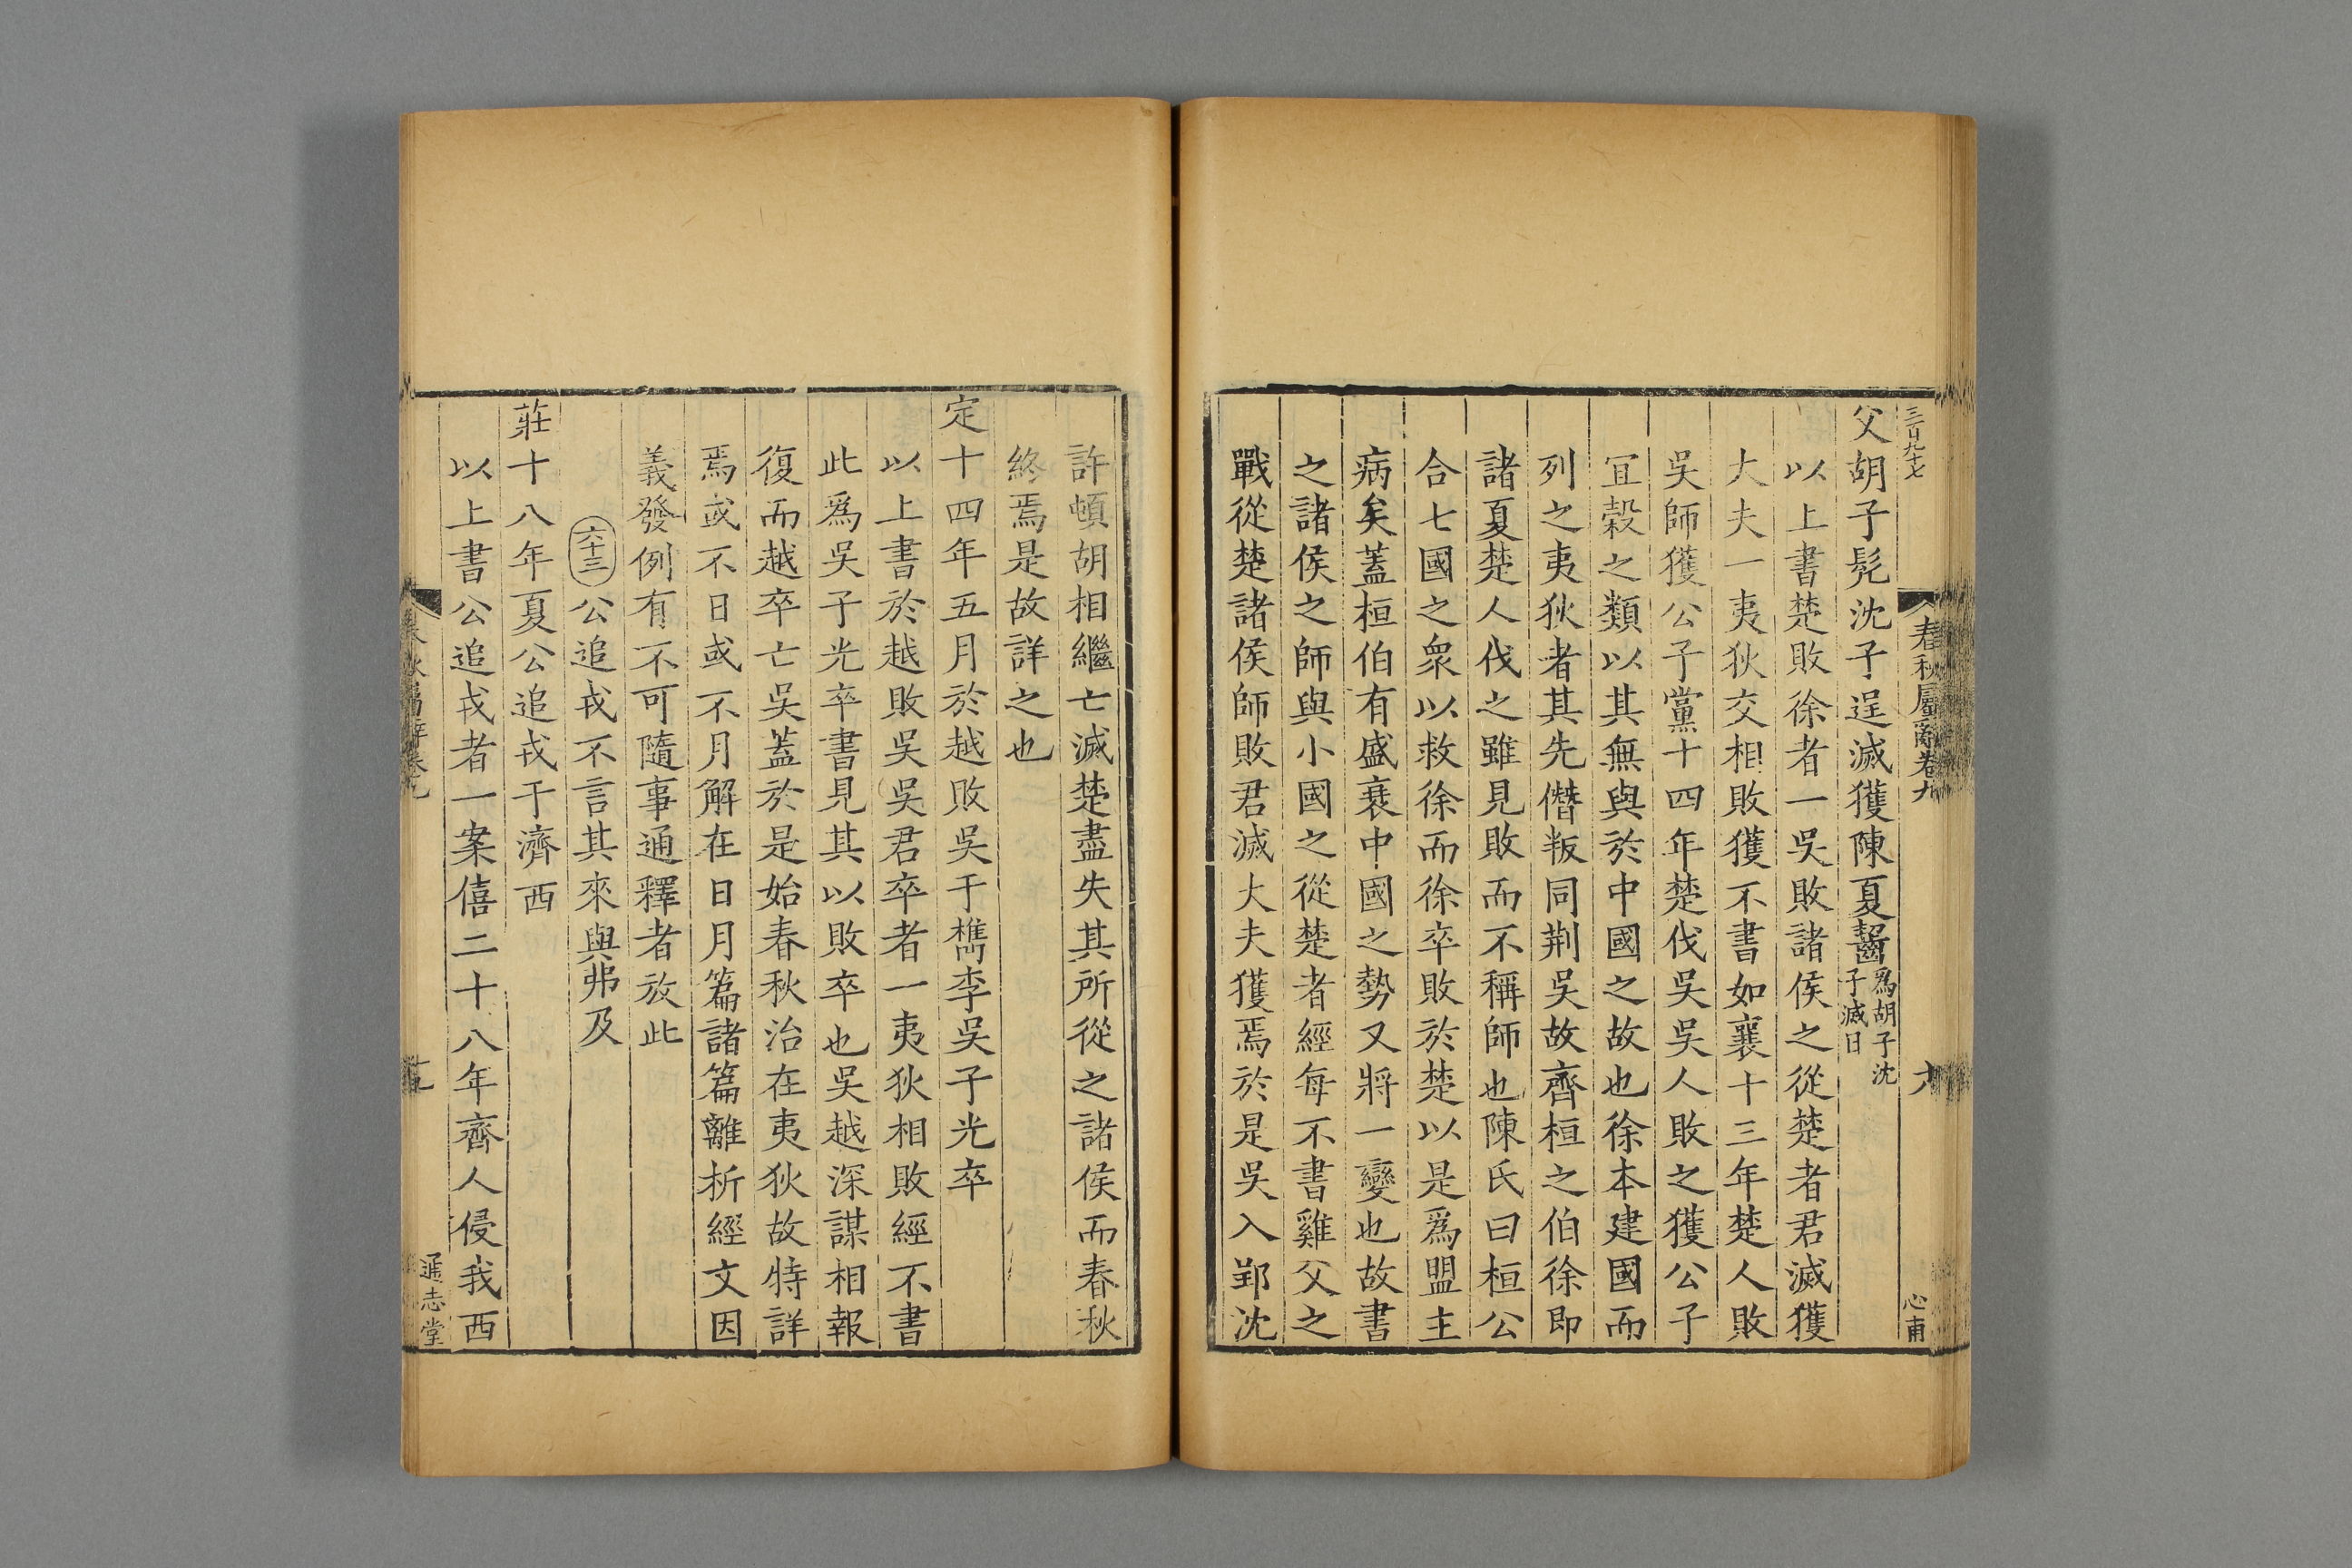 三百九十七
春秋屬辭卷九
心甫
父胡子髠沈子逞滅獲陳夏齧爲胡子沈子滅日
以上書楚敗徐者一吳敗諸侯之從楚者君滅獲
大夫一夷狄交相敗獲不書如襄十三年楚人敗
吳師獲公子黨十四年楚伐吳吳人敗之獲公子
宜穀之類以其無與於中國之故也徐本建國而
列之夷狄者其先僭叛同荆吳故齊桓之伯徐即
諸夏楚人伐之雖見敗而不稱師也陳氏曰桓公
合七國之衆以救徐而徐卒敗於楚以是爲盟主
病矣蓋桓伯有盛衰中國之勢又將一變也故書
之諸侯之師與小國之從楚者經每不書雞父之
戰從楚諸侯師敗君滅大夫獲焉於是吳入郢沈
許頓胡相繼亡滅楚盡失其所從之諸侯而春秋
終焉是故詳之也
定十四年五月於越敗吳于檇李吳子光卒
以上書於越敗吳吳君卒者一夷狄相敗經不書
此爲吳子光卒書見其以敗卒也吳越深謀相報
復而越卒亡吳蓋於是始春秋治在夷狄故特詳
焉或不日或不月解在日月篇諸篇離析經文因
義發例有不可隨事通釋者放此
六十三公追戎不言其來與弗及
莊十八年夏公追戎于濟西
以上書公追戎者一案僖二十八年齊人侵我西
通志堂